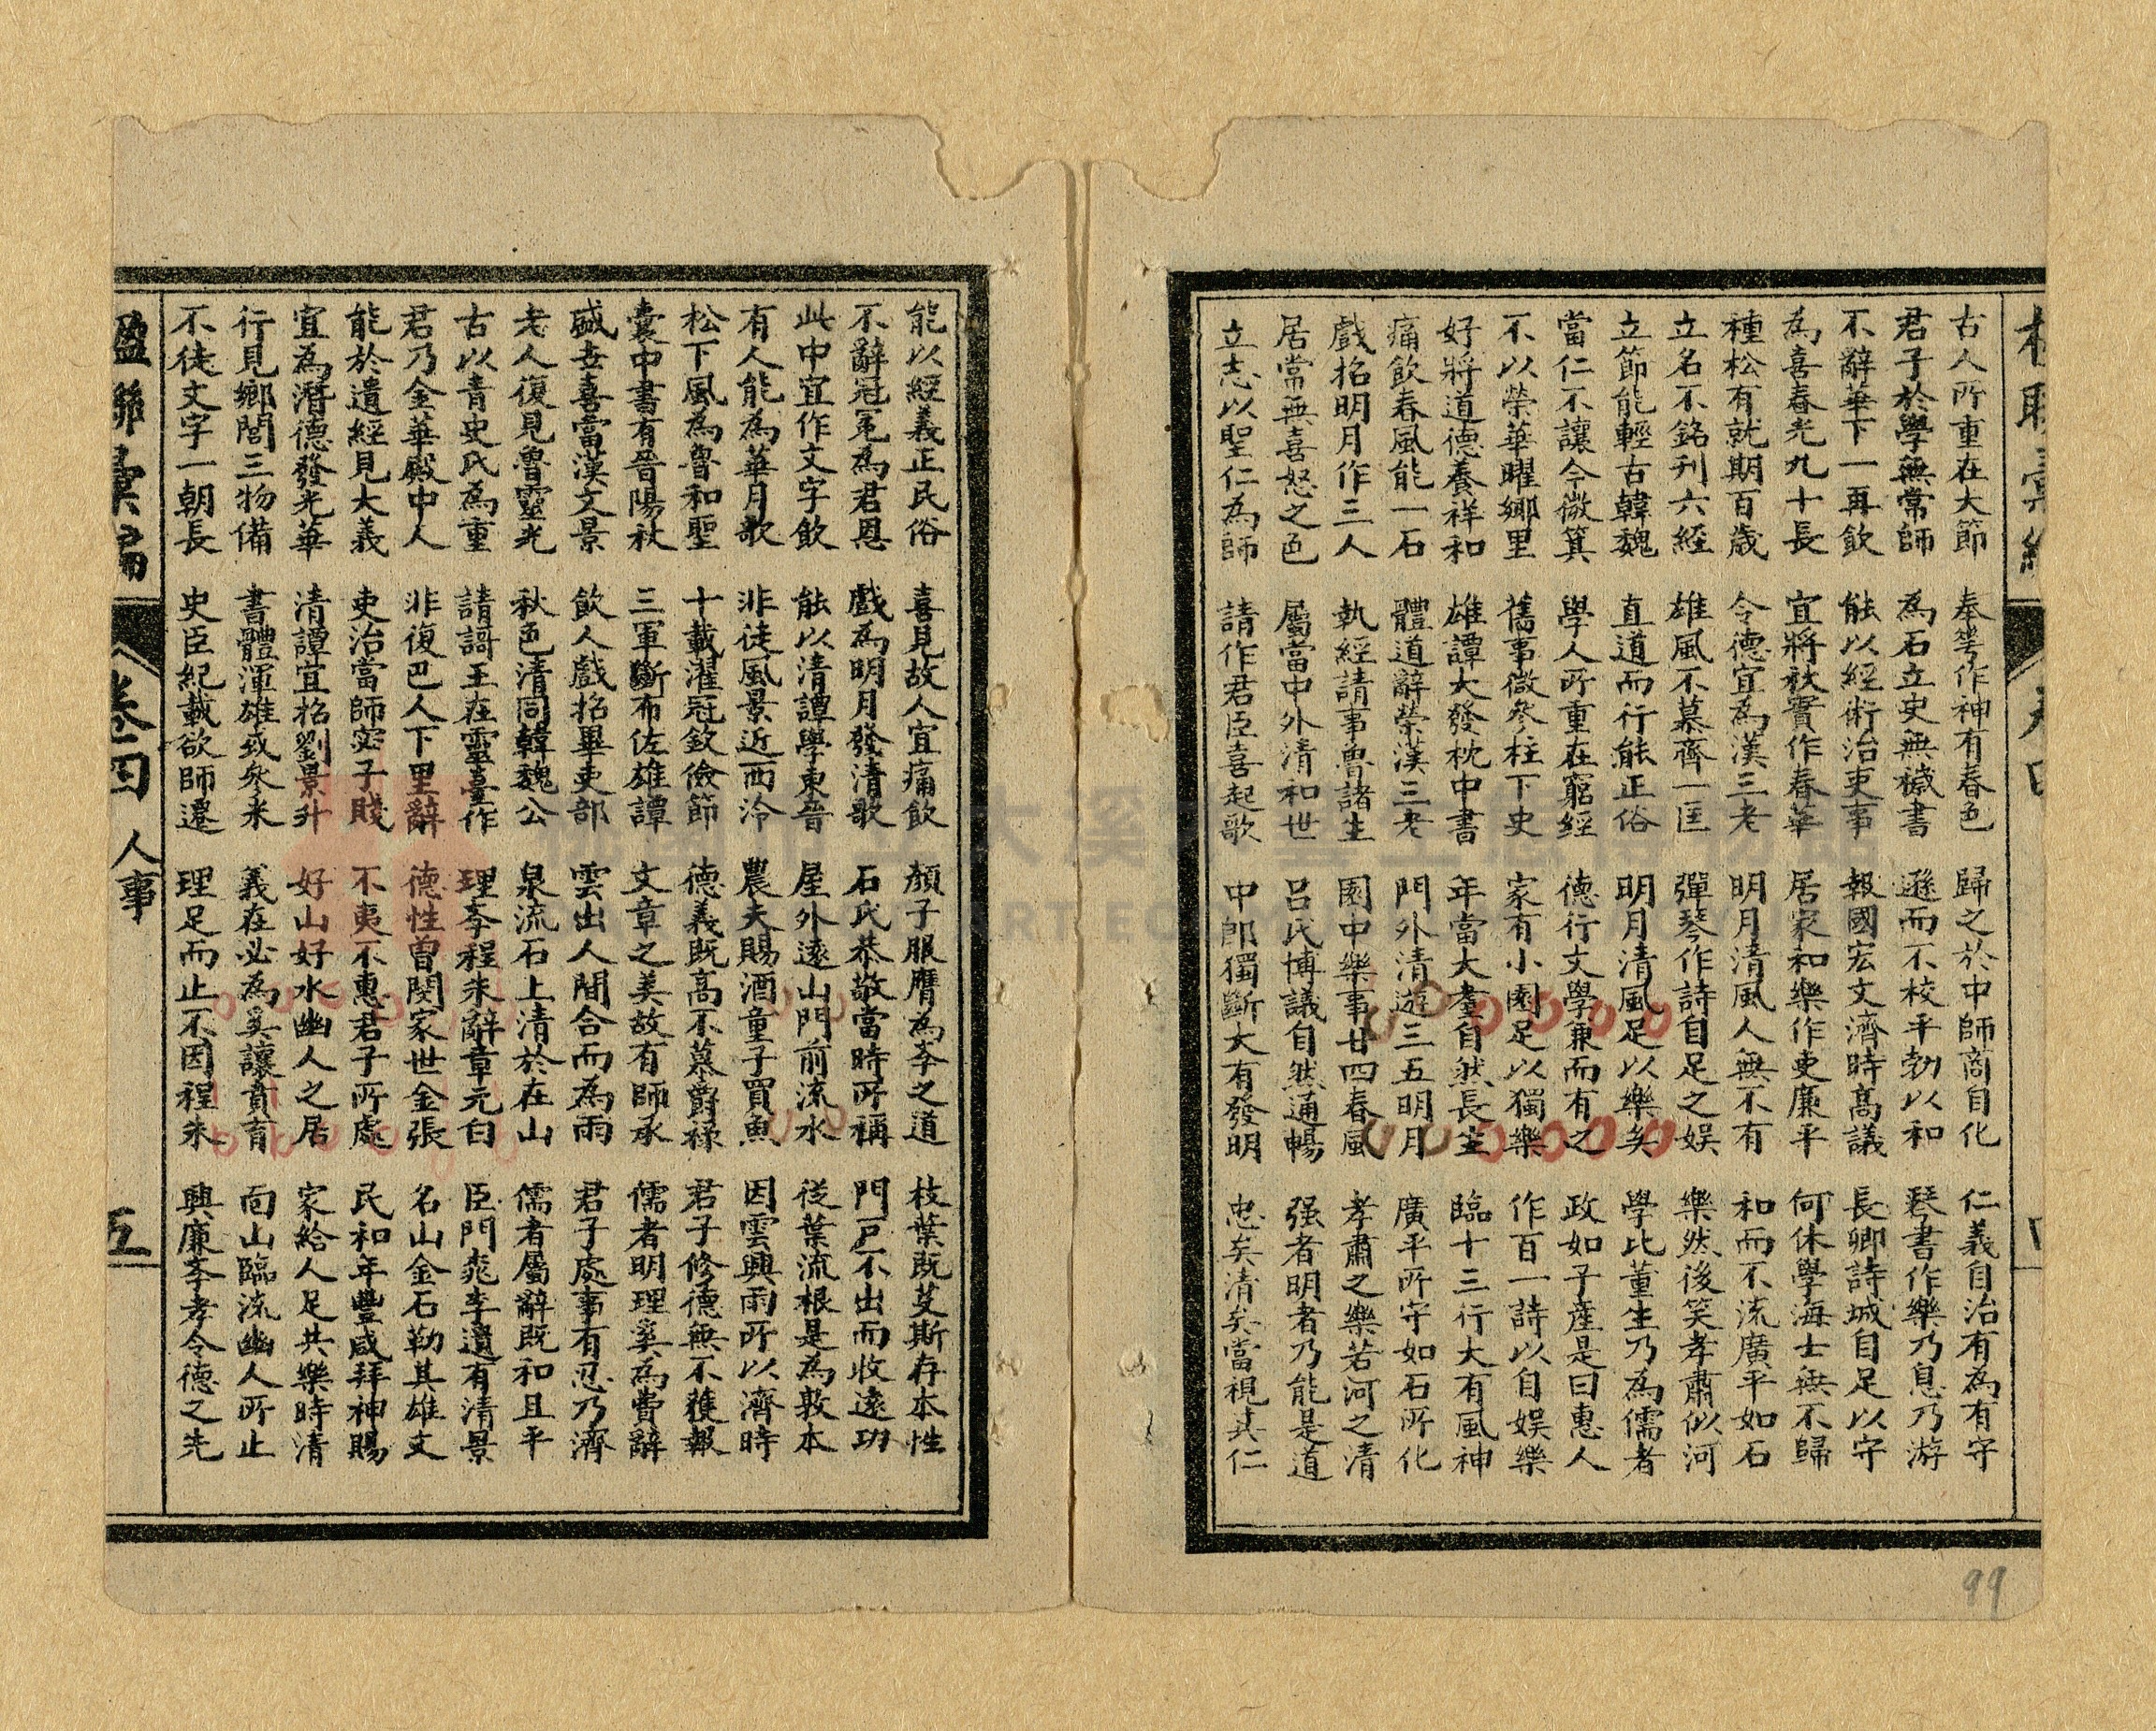 古人所重在大節 奉爲作神有春色 歸之於中師商自化 仁義自治有為有守
君子於學無常師 為石立史無穢書 遜而不校平勃以和 琴書作樂乃息乃游
不辭華下一再飲 能以經術治吏事 報國宏文濟時高議 長卿詩城自足以守
為喜春光九十長 宜將秋實作春華 居家和樂作吏廉平 何休學海士無不歸
種松有就期百歲 令德宜為漢三老 明月清風人無不有 和而不流廣平如石
立名不銘刊六經 雄風不慕齊一匡 彈琴作詩自足之娛 樂然後笑孝肅似河
立節能輕古韓魏 直道而行能正俗 明月清風足以樂矣 學比董生乃為儒者
當仁不讓今微箕 學人所重在窮經 德行文學兼而有之 政如子產是曰惠人
不以榮華曜鄉里 舊事微參柱下史 家有小園足以獨樂 作百一詩以自娛樂
好將道德養祥和 雄譚大發枕中書 年當大耋自然長生 臨十三行大有風神
痛飲春風能一石 體道辭榮漢三老 門外清遊三五明月 廣平所守如石所化
戲招明月作三人 執經請事魯諸生 園中樂事廿四春風 孝肅之樂若河之清
居常無喜怒之色 屬當中外清和世 呂氏博議自然通暢 强者明者乃能是道
立志以聖仁為師 請作君臣喜起歌 中郎獨斷大有發明 忠矣清矣當視其仁
99
能以經義正民俗 喜見故人宜痛飲 顏子服膺為孝之道 枝葉既芟斯存本性
不辭冠冕為君恩 戲為明月發清歌 石氏恭敬當時所稱 門戶不出而收遠功
此中宜作文字飲 能以清譚學東晉 屋外遠山門前流水 從葉流根是為敦本
有人能為華月歌 非徒風景近西泠 農夫賜酒童子買魚 因雲興雨所以濟時
松下風為魯和聖 十載濯冠欽儉節 德義既高不慕爵祿 君子修德無不獲報
囊中書有晉陽秋 三軍斷布佐雄譚 文章之美故有師承 儒者明理奚為費辭
盛世喜當漢文景 飲人戲招畢吏部 雲出人間合而為雨 君子處事有忍乃濟
老人復見魯靈光 秋色清同韓魏公 泉流石上清於在山 儒者屬辭既和且平
古以青史氏為重 請謌王在靈臺作 理李程朱辭章元白 臣門桃李遺有清景
君乃金華殿中人 非復巴人下里辭 德性曾閔家世金張 名山金石勒其雄文
能於遺經見大義 吏治當師宓子賤 不夷不惠君子所處 民和年豐咸拜神賜
宜為潛德發光華 清譚宜招劉景升 好山好水幽人之居 家給人足共樂時清
行見鄉閭三物備 書體渾雄或參米 義在必為奚讓賁育 面山臨流幽人所止
不徒文字一朝長 史臣紀載欲師遷 理足而止不因程朱 興廉孝孝令德之先
楹聯彙編 卷四 人事 五